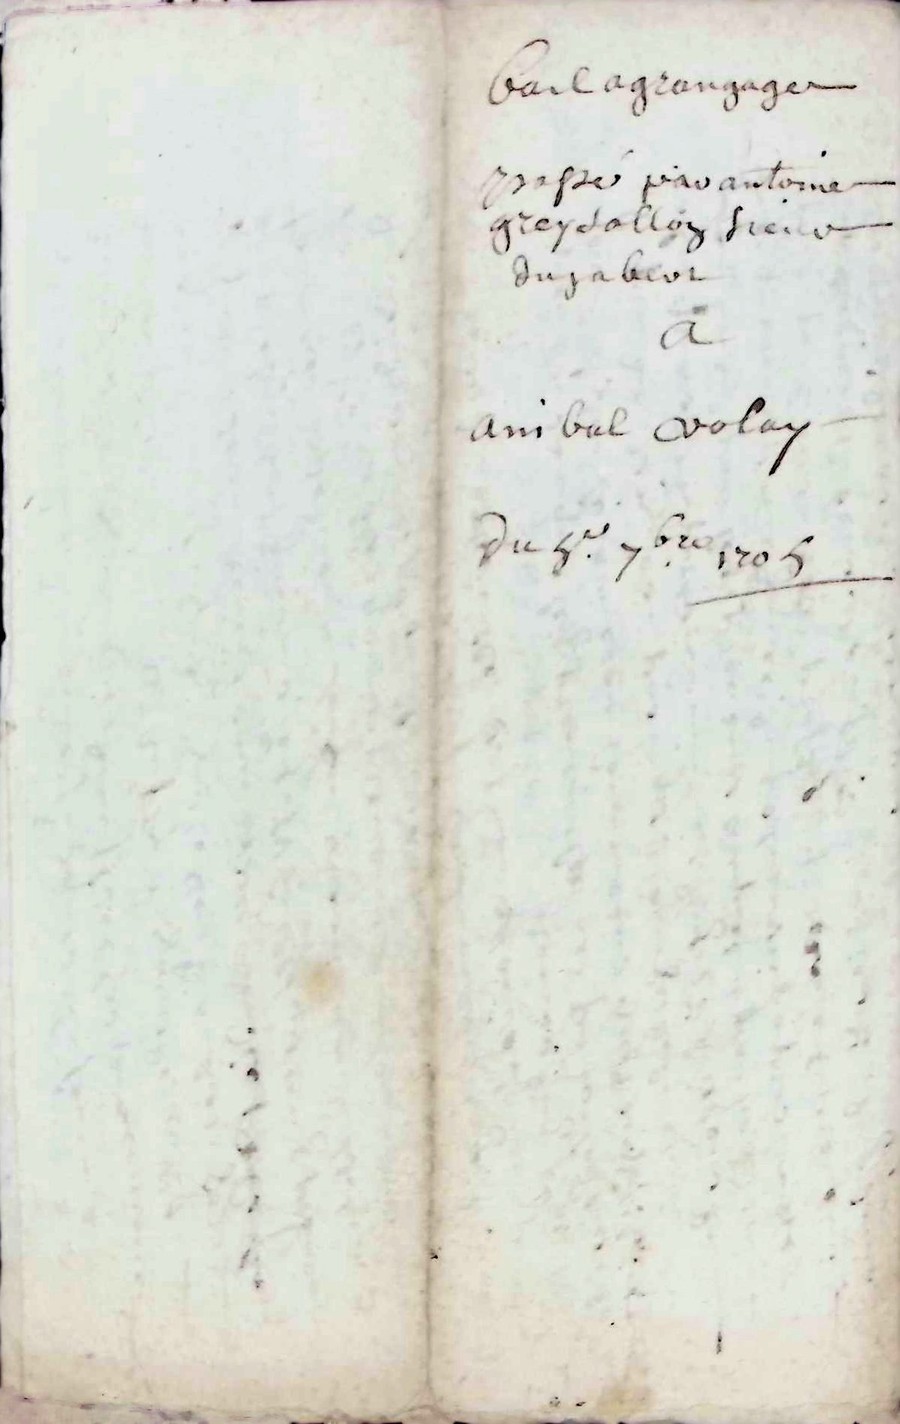 Bail agrangage
passé par antoine
greydalloz sieur
du jabeor
a
anibal volay
Du 5e. 7bre 1705